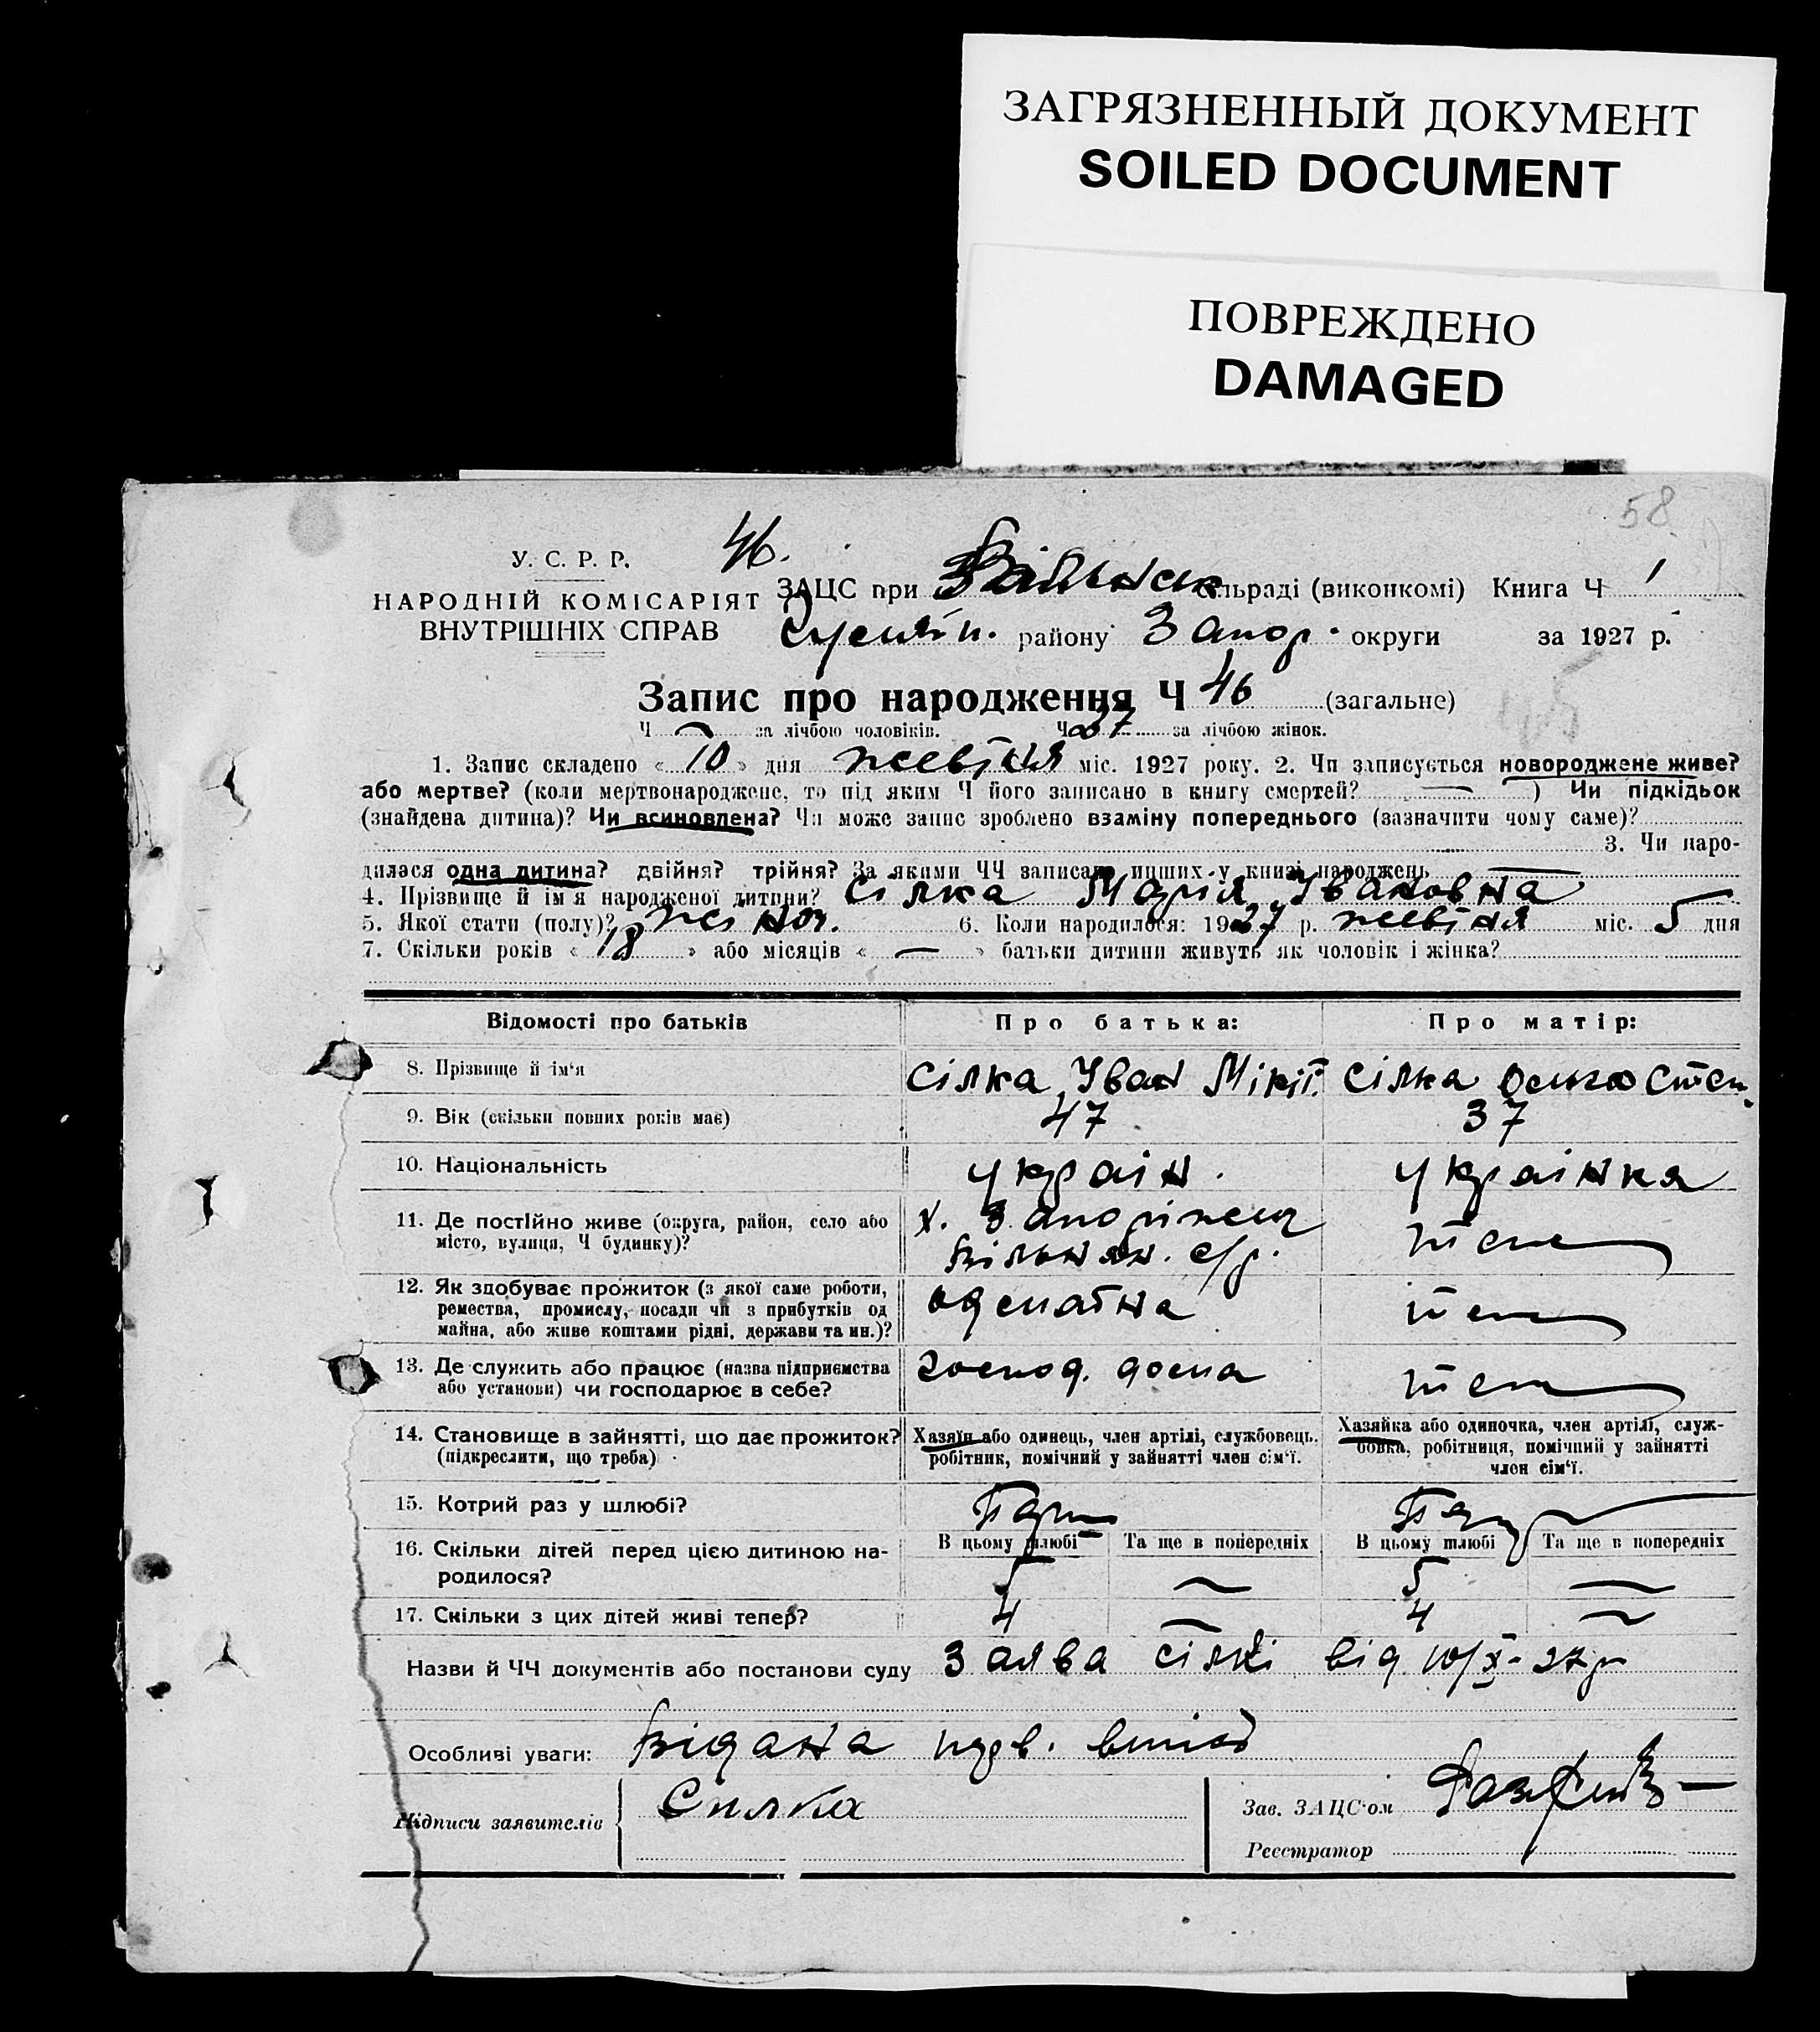 ЗАГРЯЗНЕННЫЙ ДОКУМЕНТ
SOILED DOCUMENT
ПОВРЕЖДЕНО
DAMAGED
58
У. С. Р. Р.
НАРОДНІЙ КОМІСАРІЯТ
ВНУТРІШНІХ СПРАВ
46.
ЗАЦС при сільраді (виконкомі) Книга Ч 1
району Запор. округи за 1927 р.
Запис про народження Ч 46 (загальне)
Ч за лічбою чоловіків. Ч 27 за лічбою жінок.
1. Запис складено « 10 » дня жевтня міс. 1927 року. 2. Чи записується новороджене живе?
або мертве? (коли мертвонароджене, то під яким Ч його записано в книгу смертей? — ) Чи підкідьок
(знайдена дитина)? Чи всиновлена? Чи може запис зроблено взаміну попереднього (зазначити чому саме)?
3. Чи наро-
дилася одна дитина? двійня? трійня? За якими ЧЧ записано инших у книзі народжень —
4. Прізвище й ім'я народженої дитини? Сілка Марія Івановна
5. Якої стати (полу)? жіноч. 6. Коли народилося: 1927 р. жевтня міс. 5 дня
7. Скільки років « 18 » або місяців « — » батьки дитини живуть як чоловік і жінка?
Відомості про батьків Про батька: Про матір:
8. Прізвище й ім'я Сілка Іван Мікіт. Сілка Ольга Степ.
9. Вік (скільки повних років має) 47 37
10. Національність україн. українка
11. Де постійно живе (округа, район, село або
місто, вулиця, Ч будинку)?
х. Запоріжець
Вільнян. с/р.
теж
12. Як здобуває прожиток (з якої саме роботи,
ремества, промислу, посади чи з прибутків од
майна, або живе коштами рідні, держави та ин.)?
теж
13. Де служить або працює (назва підприємства
або установи) чи господарює в себе?
господ. дома
теж
14. Становище в зайнятті, що дає прожиток?
(підкреслити, що треба)
Хазяїн або одинець, член артілі, службовець.
робітник, помічний у зайнятті член сім'ї.
Хазяйка або одиночка, член артілі, служ-
бовка, робітниця, помічний у зайнятті
член сім'ї.
15. Котрий раз у шлюбі? Перш Перш
16. Скільки дітей перед цією дитиною на-
родилося?
В цьому шлюбі Та ще в попередніх В цьому шлюбі Та ще в попередніх
5 — 5 —
17. Скільки з цих дітей живі тепер? 4 — 4 —
Назви й ЧЧ документів або постанови суду Заява Сілкі від 10/X-27р
Особливі уваги: Відана
Підписи заявителів Силка
Зав. ЗАЦС'ом
Реєстратор